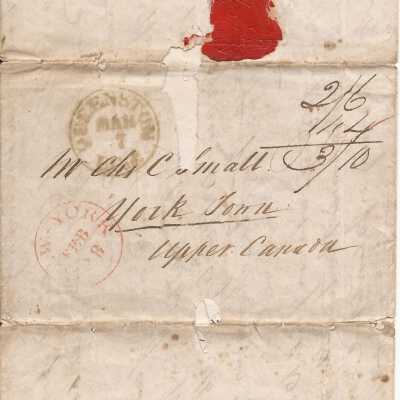 QUEENSTON
MAR
7
2/6
1/4
3/10
Mr Chs C Small
York Town
Upper Canada
W-YORK
FEB
8